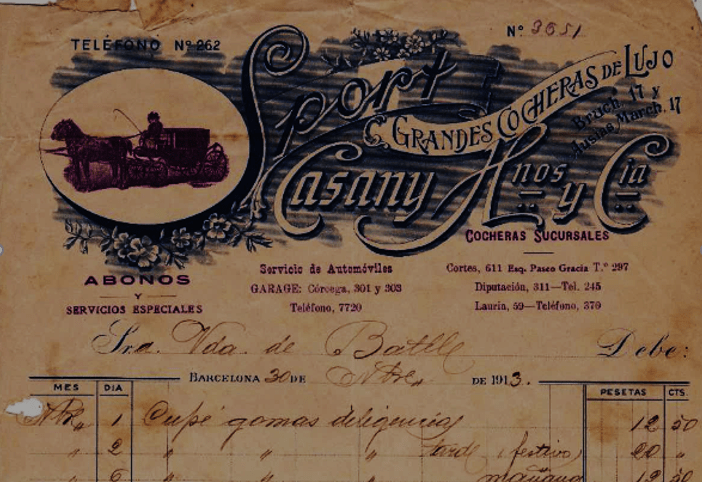 TELÉFONO Nº 262
Nº 3651
Sport
Cª GRANDES COCHERAS DE LUJO
Bruch, 17 y
Ausias March, 17
Casany Hnos y Cia
COCHERAS SUCURSALES
ABONOS
Y
SERVICIOS ESPECIALES
Servicio de Automóviles
GARAGE: Córcega, 301 y 303
Teléfono, 7720
Cortes, 611 Esq. Paseo Gracia T.º 297
Diputación, 311—Tel. 245
Lauria, 59—Teléfono, 370
Sra. Vda. de Batlle Debe:
BARCELONA 30 DE Nbre. DE 1913.
MES DIA PESETAS CTS.
1 Cupé gomas diligencias 12 50
" 2 " " " tarde festivo 20 "
" 6 " " " mañana 12 50